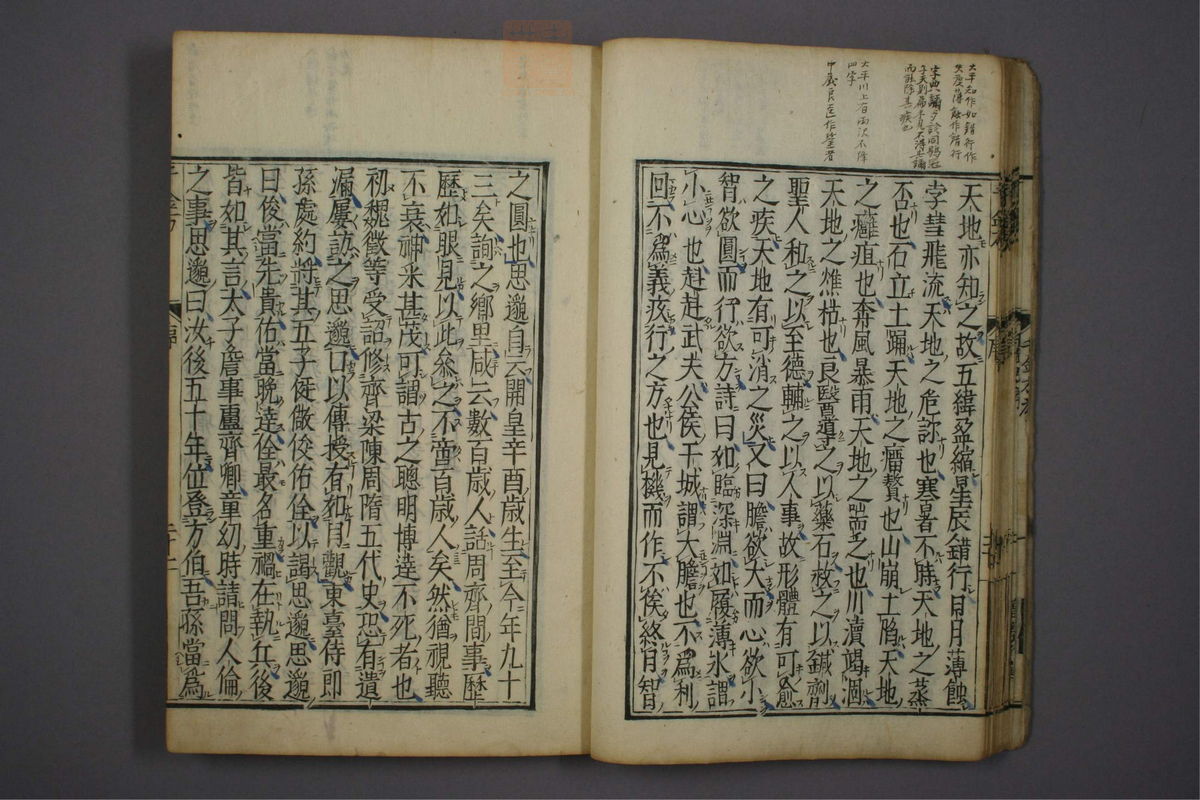 太平知作如錯行作
失度薄蝕作錯行
天地亦知之故五緯盈縮星辰錯行日月薄蝕
孛彗飛流天地之危診也寒暑不時天地之蒸
否也石立土踊天地之瘤贅也山崩土陷天地
之癰疽也奔風暴雨天地之喘乏也川瀆竭涸
天地之燋枯也良醫導之以藥石救之以鍼劑
聖人和之以至德輔之以人事故形體有可愈
之疾天地有可消之災又曰膽欲大而心欲小
智欲圓而行欲方詩曰如臨深淵如履薄氷謂
小心也赳赳武夫公侯干城謂大膽也不為利
回不為義疚行之方也見機而作不俟終日智
太平川上有雨沢不降
四字
中良医作筆者
之圓也思邈自云開皇辛酉歲生至今年九十
三矣詢之鄉里咸云數百歲人話周齊間事歷
歷如眼見以此參之不啻百歲人矣然猶視聽
不衰神采甚茂可謂古之聰明博達不死者也
初魏徵等受詔修齊梁陳周隋五代史恐有遺
漏屢訪之思邈口以傳授有如目觀東臺侍郎
孫處約將其五子侹儆俊佑佺以謁思邈思邈
曰俊當先貴佑當晚達佺最名重禍在執兵後
皆如其言太子詹事盧齊卿童幼時請問人倫
之事思邈曰汝後五十年位登方伯吾孫當為